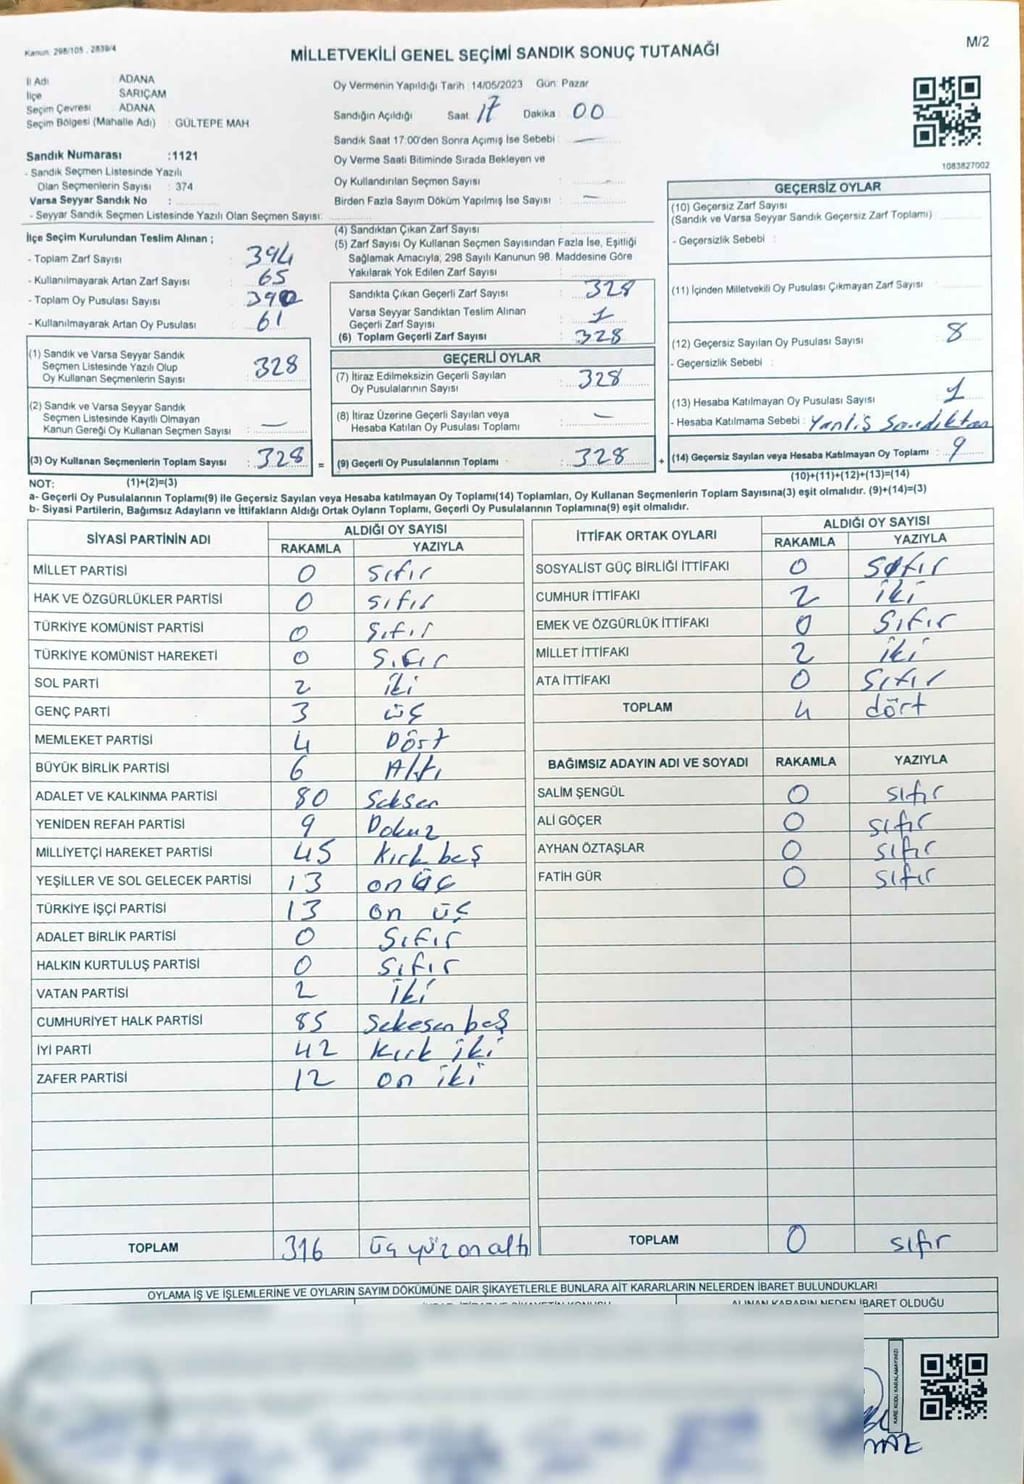 Kanun: 298/105 , 2839/4
MİLLETVEKİLİ GENEL SEÇİMİ SANDIK SONUÇ TUTANAĞI
M/2
İl Adı : ADANA
İlçe : SARIÇAM
Seçim Çevresi : ADANA
Seçim Bölgesi (Mahalle Adı) : GÜLTEPE MAH
Oy Vermenin Yapıldığı Tarih : 14/05/2023 Gün: Pazar
Sandığın Açıldığı Saat: 17 Dakika : 00
Sandık Saat 17:00'den Sonra Açımış İse Sebebi : —
Oy Verme Saati Bitiminde Sırada Bekleyen ve
Oy Kullandırılan Seçmen Sayısı :
Birden Fazla Sayım Döküm Yapılmış İse Sayısı : —
1083827002
Sandık Numarası :1121
- Sandık Seçmen Listesinde Yazılı
Olan Seçmenlerin Sayısı : 374
Varsa Seyyar Sandık No :
- Seyyar Sandık Seçmen Listesinde Yazılı Olan Seçmen Sayısı:
İlçe Seçim Kurulundan Teslim Alınan ;
- Toplam Zarf Sayısı : 394
- Kullanılmayarak Artan Zarf Sayısı : 65
- Toplam Oy Pusulası Sayısı : 390
- Kullanılmayarak Artan Oy Pusulası : 61
(1) Sandık ve Varsa Seyyar Sandık
Seçmen Listesinde Yazılı Olup
Oy Kullanan Seçmenlerin Sayısı : 328
(2) Sandık ve Varsa Seyyar Sandık
Seçmen Listesinde Kayıtlı Olmayan
Kanun Gereği Oy Kullanan Seçmen Sayısı : —
(3) Oy Kullanan Seçmenlerin Toplam Sayısı : 328
(4) Sandıktan Çıkan Zarf Sayısı :
(5) Zarf Sayısı Oy Kullanan Seçmen Sayısından Fazla İse, Eşitliği
Sağlamak Amacıyla, 298 Sayılı Kanunun 98. Maddesine Göre
Yakılarak Yok Edilen Zarf Sayısı :
Sandıkta Çıkan Geçerli Zarf Sayısı : 328
Varsa Seyyar Sandıktan Teslim Alınan
Geçerli Zarf Sayısı : 1
(6) Toplam Geçerli Zarf Sayısı : 328
GEÇERLİ OYLAR
(7) İtiraz Edilmeksizin Geçerli Sayılan
Oy Pusulalarının Sayısı : 328
(8) İtiraz Üzerine Geçerli Sayılan veya
Hesaba Katılan Oy Pusulası Toplamı : —
= (9) Geçerli Oy Pusulalarının Toplamı : 328
GEÇERSİZ OYLAR
(10) Geçersiz Zarf Sayısı
(Sandık ve Varsa Seyyar Sandık Geçersiz Zarf Toplamı)
- Geçersizlik Sebebi :
(11) İçinden Milletvekili Oy Pusulası Çıkmayan Zarf Sayısı :
(12) Geçersiz Sayılan Oy Pusulası Sayısı : 8
- Geçersizlik Sebebi :
(13) Hesaba Katılmayan Oy Pusulası Sayısı : 1
- Hesaba Katılmama Sebebi : Yanlış Sandıktan
+ (14) Geçersiz Sayılan veya Hesaba Katılmayan Oy Toplamı : 9
NOT: (1)+(2)=(3)
(10)+(11)+(12)+(13)=(14)
a- Geçerli Oy Pusulalarının Toplamı(9) ile Geçersiz Sayılan veya Hesaba katılmayan Oy Toplamı(14) Toplamları, Oy Kullanan Seçmenlerin Toplam Sayısına(3) eşit olmalıdır. (9)+(14)=(3)
b- Siyasi Partilerin, Bağımsız Adayların ve İttifakların Aldığı Ortak Oyların Toplamı, Geçerli Oy Pusulalarının Toplamına(9) eşit olmalıdır.
SİYASİ PARTİNİN ADI ALDIĞI OY SAYISI
RAKAMLA YAZIYLA
MİLLET PARTİSİ 0 sıfır
HAK VE ÖZGÜRLÜKLER PARTİSİ 0 sıfır
TÜRKİYE KOMÜNİST PARTİSİ 0 sıfır
TÜRKİYE KOMÜNİST HAREKETİ 0 sıfır
SOL PARTİ 2 iki
GENÇ PARTİ 3 üç
MEMLEKET PARTİSİ 4 Dört
BÜYÜK BİRLİK PARTİSİ 6 Altı
ADALET VE KALKINMA PARTİSİ 80 Seksen
YENİDEN REFAH PARTİSİ 9 Dokuz
MİLLİYETÇİ HAREKET PARTİSİ 45 Kırk beş
YEŞİLLER VE SOL GELECEK PARTİSİ 13 on üç
TÜRKİYE İŞÇİ PARTİSİ 13 on üç
ADALET BİRLİK PARTİSİ 0 Sıfır
HALKIN KURTULUŞ PARTİSİ 0 sıfır
VATAN PARTİSİ 2 İki
CUMHURİYET HALK PARTİSİ 85 Sekesen beş
İYİ PARTİ 42 Kırk iki
ZAFER PARTİSİ 12 on iki
TOPLAM 316 üç yüz on altı
İTTİFAK ORTAK OYLARI ALDIĞI OY SAYISI
RAKAMLA YAZIYLA
SOSYALİST GÜÇ BİRLİĞİ İTTİFAKI 0 sıfır
CUMHUR İTTİFAKI 2 iki
EMEK VE ÖZGÜRLÜK İTTİFAKI 0 sıfır
MİLLET İTTİFAKI 2 iki
ATA İTTİFAKI 0 sıfır
TOPLAM 4 dört
BAĞIMSIZ ADAYIN ADI VE SOYADI RAKAMLA YAZIYLA
SALİM ŞENGÜL 0 sıfır
ALİ GÖÇER 0 sıfır
AYHAN ÖZTAŞLAR 0 sıfır
FATİH GÜR 0 sıfır
TOPLAM 0 sıfır
OYLAMA İŞ VE İŞLEMLERİNE VE OYLARIN SAYIM DÖKÜMÜNE DAİR ŞİKAYETLERLE BUNLARA AİT KARARLARIN NELERDEN İBARET BULUNDUKLARI
ALINAN KARARIN NEDEN İBARET OLDUĞU
KARE KODU KARALAMAYINIZ!